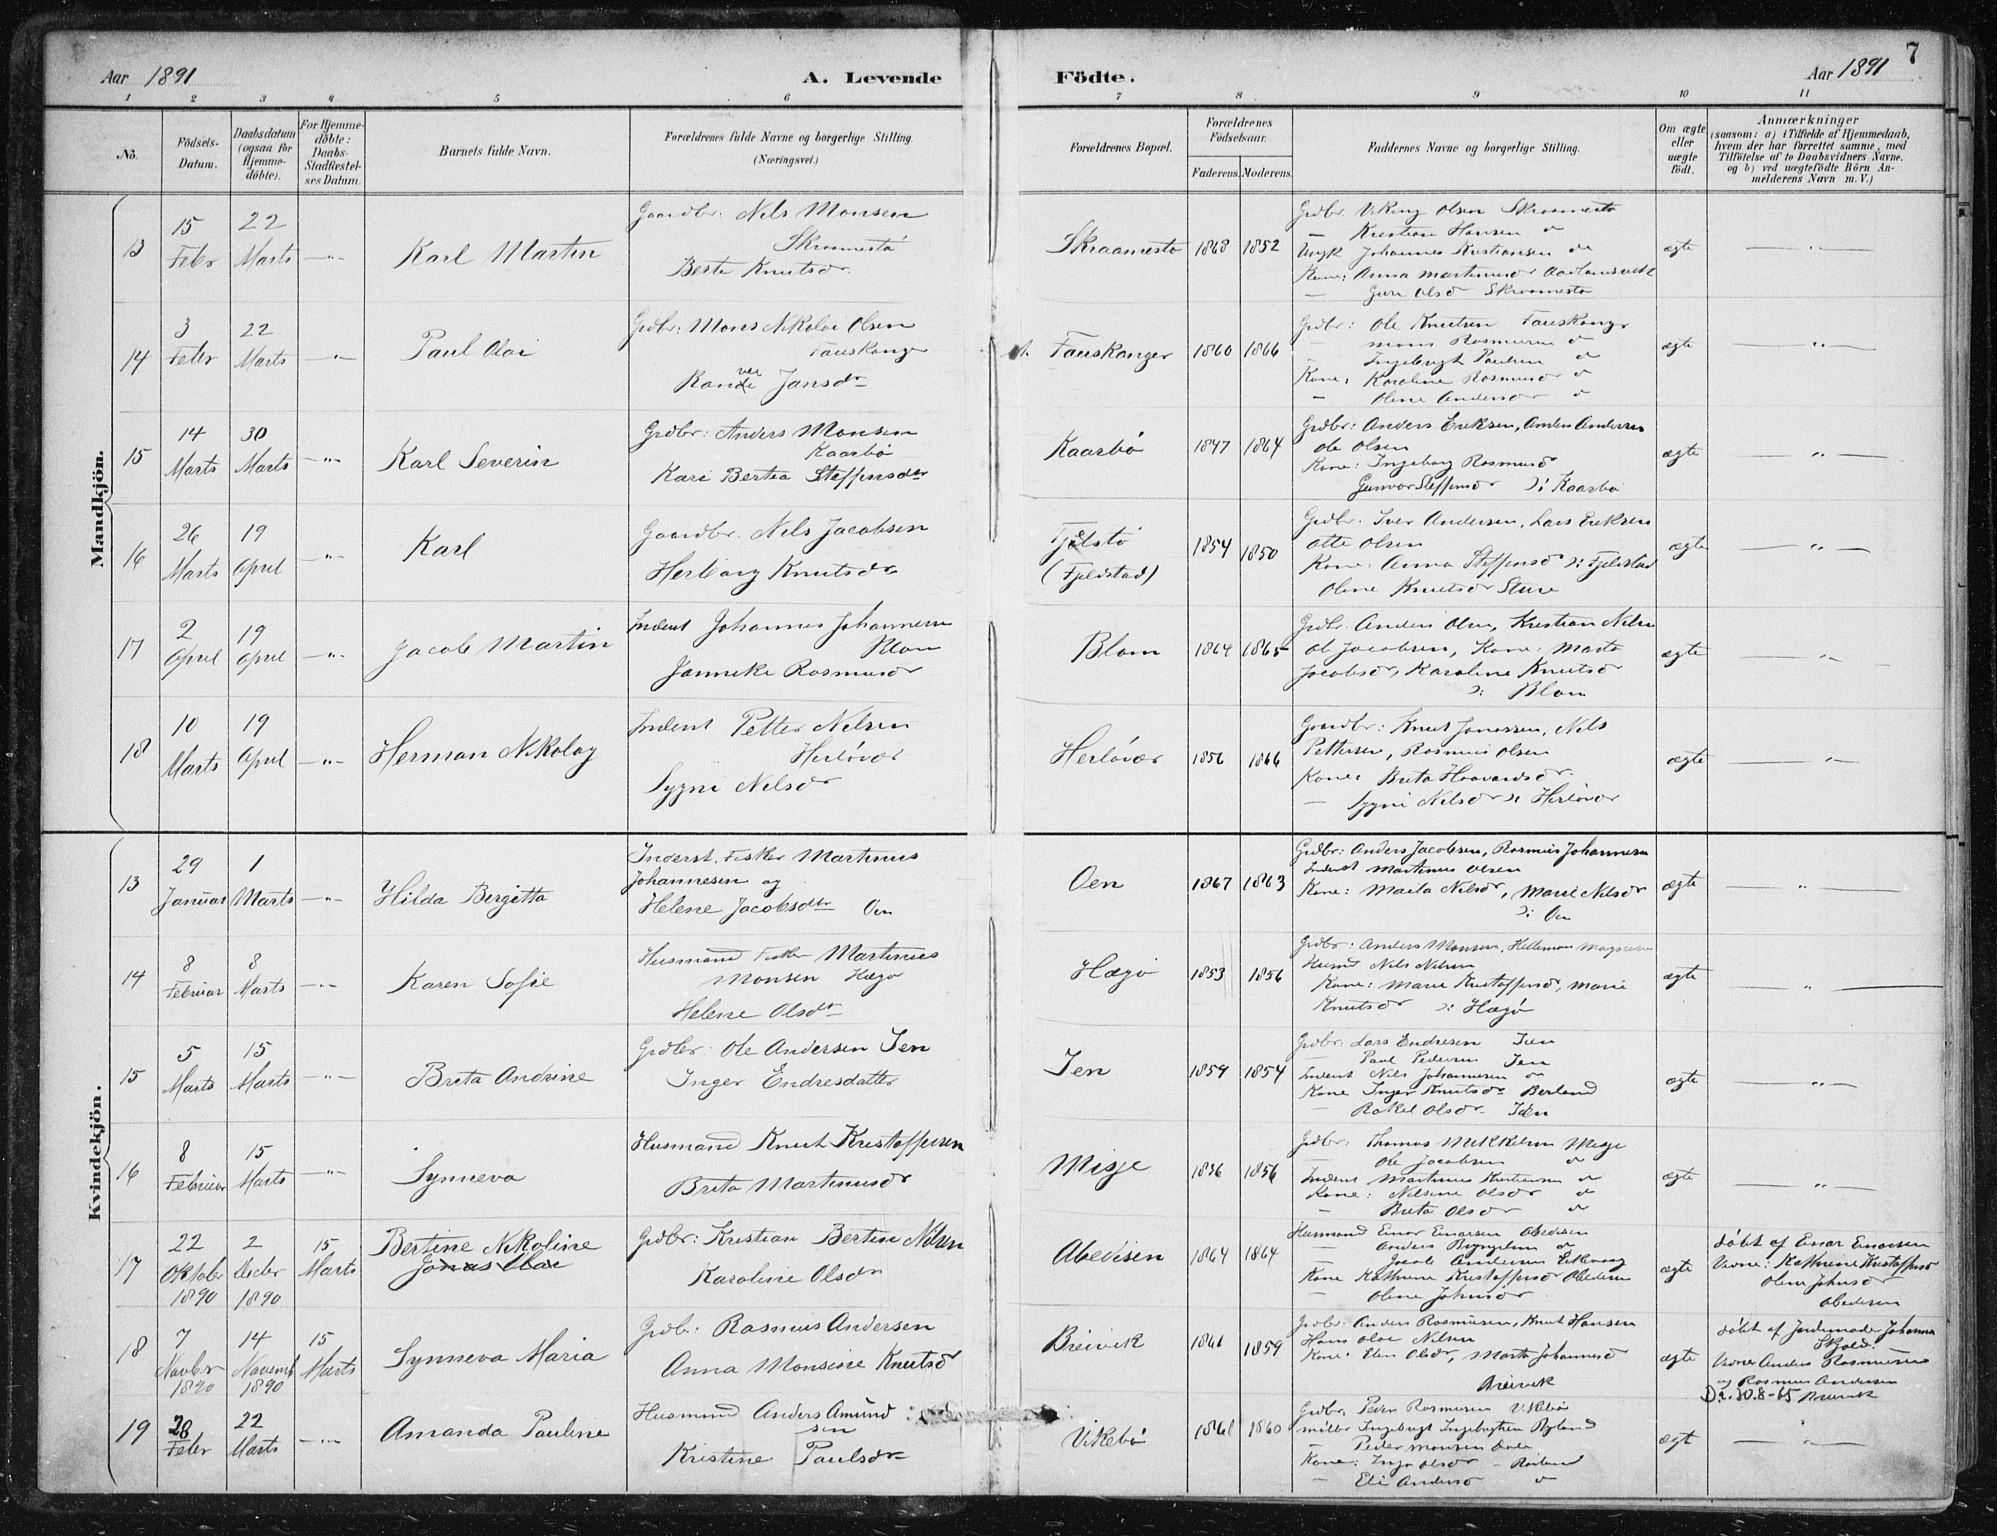 7
Aar 1891 A. Levende Födte. Aar 1891
1 2 3 4 5 6 7 8 9 10 11
No. Födsels-Datum. Daabsdatum (ogsaa for Hjemme-döbte). For Hjemme-döbte: Daabs-Stadfæstel-ses Datum. Barnets fulde Navn. Forældrenes fulde Navne og borgerlige Stilling. (Næringsvei.) Forældrenes Bopæl. Forældrenes Födselsaar. Faderens. Moderens. Faddernes Navne og borgerlige Stilling. Om ægte eller uægte födt. Anmærkninger (saasom: a) i Tilfælde af Hjemmedaab, hvem der har forrettet samme, med Tilföielse af to Daabsvidners Navne, og b) ved uægtefödte Börn An-melderens Navn m. V.)
Mandkjön.
13 15 Febr 22 Marts -"- Karl Martin Gaardbr: Nils Monsen Skraamestø Berte Knutsdr Skraamestø 1868 1852
Grdbr. Viking Olsen Skraamestø
— Kristian Hansen do
Ungk Johannes Kristiansen do
Kone: Anna Martinusdr
— Guri Olsd Skraamestø
ægte — " —
14 3 Febr 22 Marts -"- Paul Olai Grdbr: Mons Nikolai Olsen Fauskanger Jansdr Fauskanger 1860 1866
Grdbr: Ole Knutsen Fauskanger
— Mons Rasmussen do
— Ingebrigt Paulsen do
Kone: Karoline Rasmusdr do
— Oline Andersdr do
ægte — " —
15 14 Marts 30 Marts -"- Karl Severin Grdbr: Anders Monsen Kaarbø Kari Bertea Steffensdtr Kaarbø 1847 1864
Grdbr: Anders Eriksen, Anders Andersen
Ole Olsen
Kone: Ingeborg Rasmusd
Gunvor Steffensdr ɔ: Kaarbø
ægte — " —
16 26 Marts 19 April -"- Karl Gaardbr. Nils Jacobsen Herborg Knutsdr Fjelstø (Fjeldstad) 1854 1850
Grdbr. Iver Andersen, Lars Eriksen
Otte Olsen
Kone: Anna Steffensd ɔ: Fjeldstad
Oline Knutsdr Sture
ægte — " —
17 2 April 19 April -"- Jacob Martin Inderst Johannes Johannesen Blom Janneke Rasmusdr Blom 1864 1865
Grdbr. Anders Olsen, Kristian Nilsen
Ole Jacobsen, Kone: Marta
Jacobsdr, Karoline Knutsdr
ɔ: Blom
ægte — " —
18 10 Marts 19 April -"- Herman Nikolay Inderst Petter Nilsen Herløvær Sygni Nilsdr Herløvær 1856 1866
Gaardbr: Knut Jonassen, Nils
Pettersen, Rasmus Olsen
Kone: Brita Haavardsdr
— Sygni Nilsdr ɔ: Herløvær
ægte — " —
Kvindekjön.
13 29 Januar 1 Marts -"- Hilda Bergitta Inderst, Fisker Martinus Johannesen og Helene Jacobsdtr Oen Oen 1867 1863
Grdbr: Anders Jacobsen, Rasmus Johannesen
Inderst Martinus Olsen
Kone: Marta Nilsdr, Marie Nilsdr
ɔ: Oen
ægte — " —
14 8 Februar 8 Marts -"- Karen Sofie Husmand Fisker Martinus Monsen Hægø Helene Olsdtr Hægø 1853 1856
Grdbr: Anders Monsen, Magnesen
Husmd Nils Nilsen
Kone: Marie Kristoffersdr, Marie
Knutsdr ɔ: Hægø
ægte — " —
15 5 Marts 15 Marts -"- Brita Andrine Grdbr: Ole Andersen Ien Inger Endresdatter Ien 1859 1854
Grdbr: Lars Endresen Ien
— Paul Pedersen Ien
Inderst Nils Johannesen do
Kone Inger Knutsdr Berland
— Rakel Olsdr Ien
ægte — " —
16 8 Februar 15 Marts -"- Synneva Husmand Knut Kristoffersen Brita Martinusdr Misje 1856
Grdbr: Thomas Mikkelsen Misje
— Ole Jacobsen do
Inderst Martinus Kristiansen do
Kone: Nilsine Olsdr do
— Brita Olsdr do
ægte — " —
17 22 Oktober 1890 2 Decbr 1890 15 Marts Bertine Nikoline Jonas Olai Grdbr: Kristian Bertin Nilsen Karoline Olsdr Abedisen 1864 1864
Husmand Einar Einarsen Abedisen
— Anders do
— Jacob Andersen
Kone Kathrine Kristoffersdr Abedisen
— Oline Johnsdr
ægte
Döbt af Einar Einarsen
Vidne: Kathrine Kristoffersd
Oline Johnsdr
Abedisen
18 7 Novbr 1890 14 Novemb 1890 15 Marts Synneva Maria Grdb: Rasmus Andersen Anna Monsine Knutsd Breivik 1861 1859
Grdbr: Anders Rasmussen, Knut Hansen
Hans Olai Nilsen
Kone: Elen Olsdr, Marta Johannesd
Breivik
ægte
Döbt af Jordemoder Johanna
Skjold.
Vidner Anders Rasmussen
og Rasmus Andersen
Breivik
D. 20.8-65
19 28 Febr 22 Marts -"- Amanda Pauline Husmand Anders Amundsen Kristine Paulsdr Vikebø 1861 1860
Grdbr: Peder Rasmussen Vikebø
Møller Ingebrigt Ingebrigtsen
— Peder Monsen Dale
Kone: Inga Olsdr
— Eli Andersd do
ægte — " —